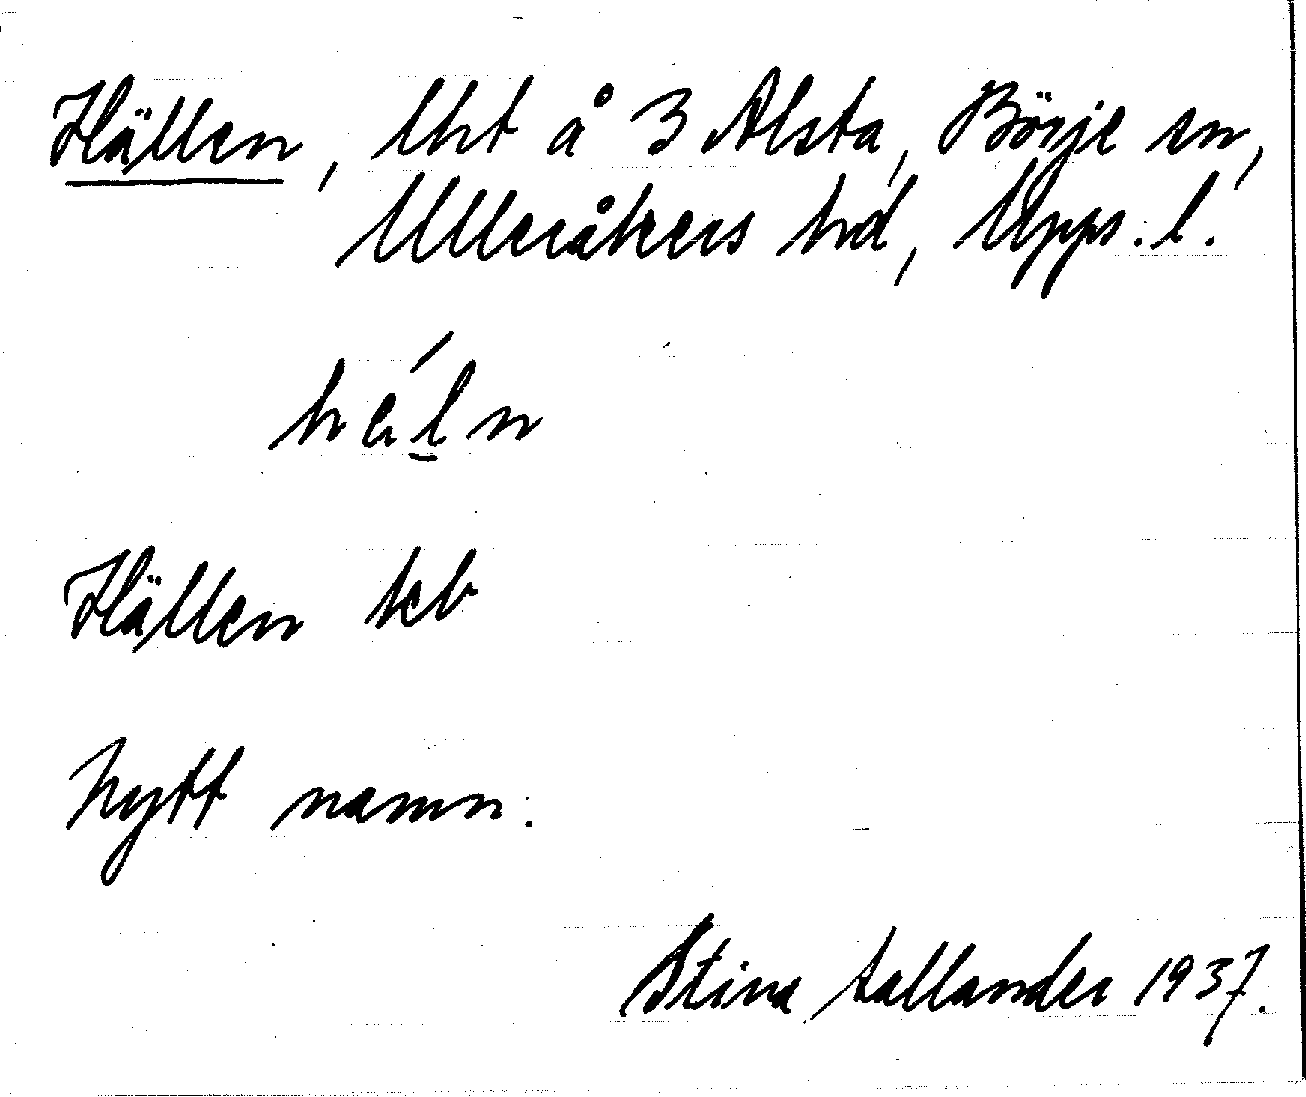 Hällen, lht å 3 Alsta, Börje sn,
Ulleråkers hd, Upps. l.
Hällen kb
Nytt namn.
Stina Lallander 1937.